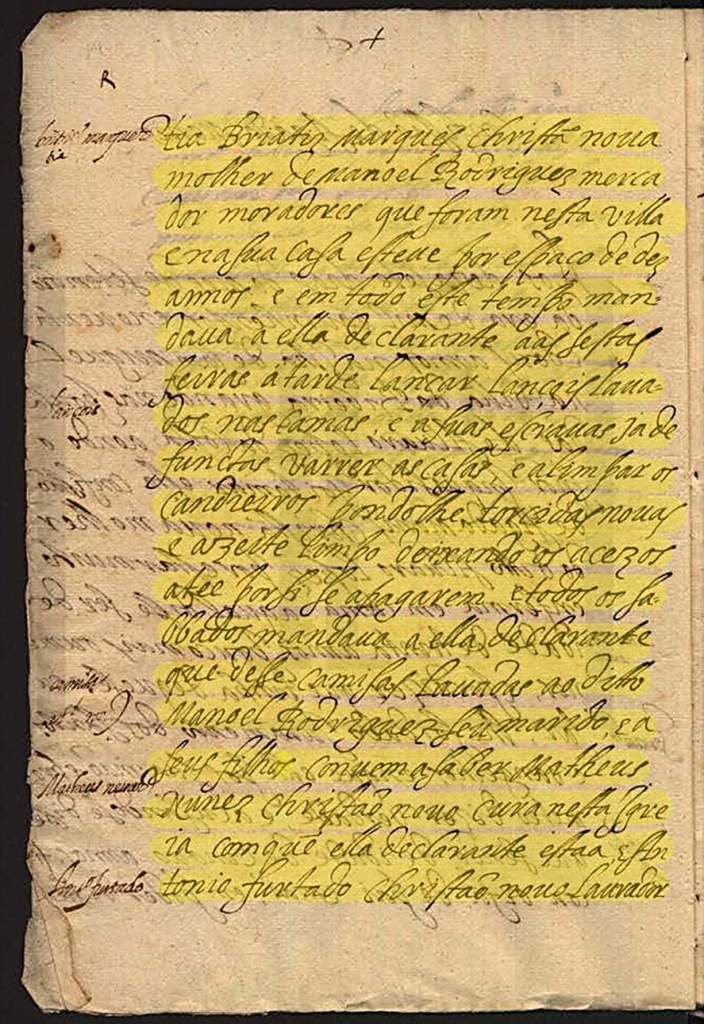 R
tia Briatis Marques Christã noua
molher de Manoel Rodriguez merca
dor moradores que foram nesta villa
e na sua casa esteue por espaço de dez
annos, e em todo este tempo man-
daua a ella declarante aas sestas
feiras á tarde lançar lançois laua-
dos nas camas, e a suas escrauas ja de
functas varrer as casas, e alimpar os
candieiros pondolhe torcidas nouas
e azeite limpo deixandoos acezos
atee por si se apagarem, e todos os sa-
bbados mandaua a ella declarante
que desse camisas lauadas ao ditto
Manoel Rodrzguez seu marido, e a
seus filhos conuem a saber Matheus
Nunez christaõ nouo cura nesta Igre
ia com que ella declarante estaa, e An
tonio furtado christaõ nouo laurador
lançois
camisas
furtado